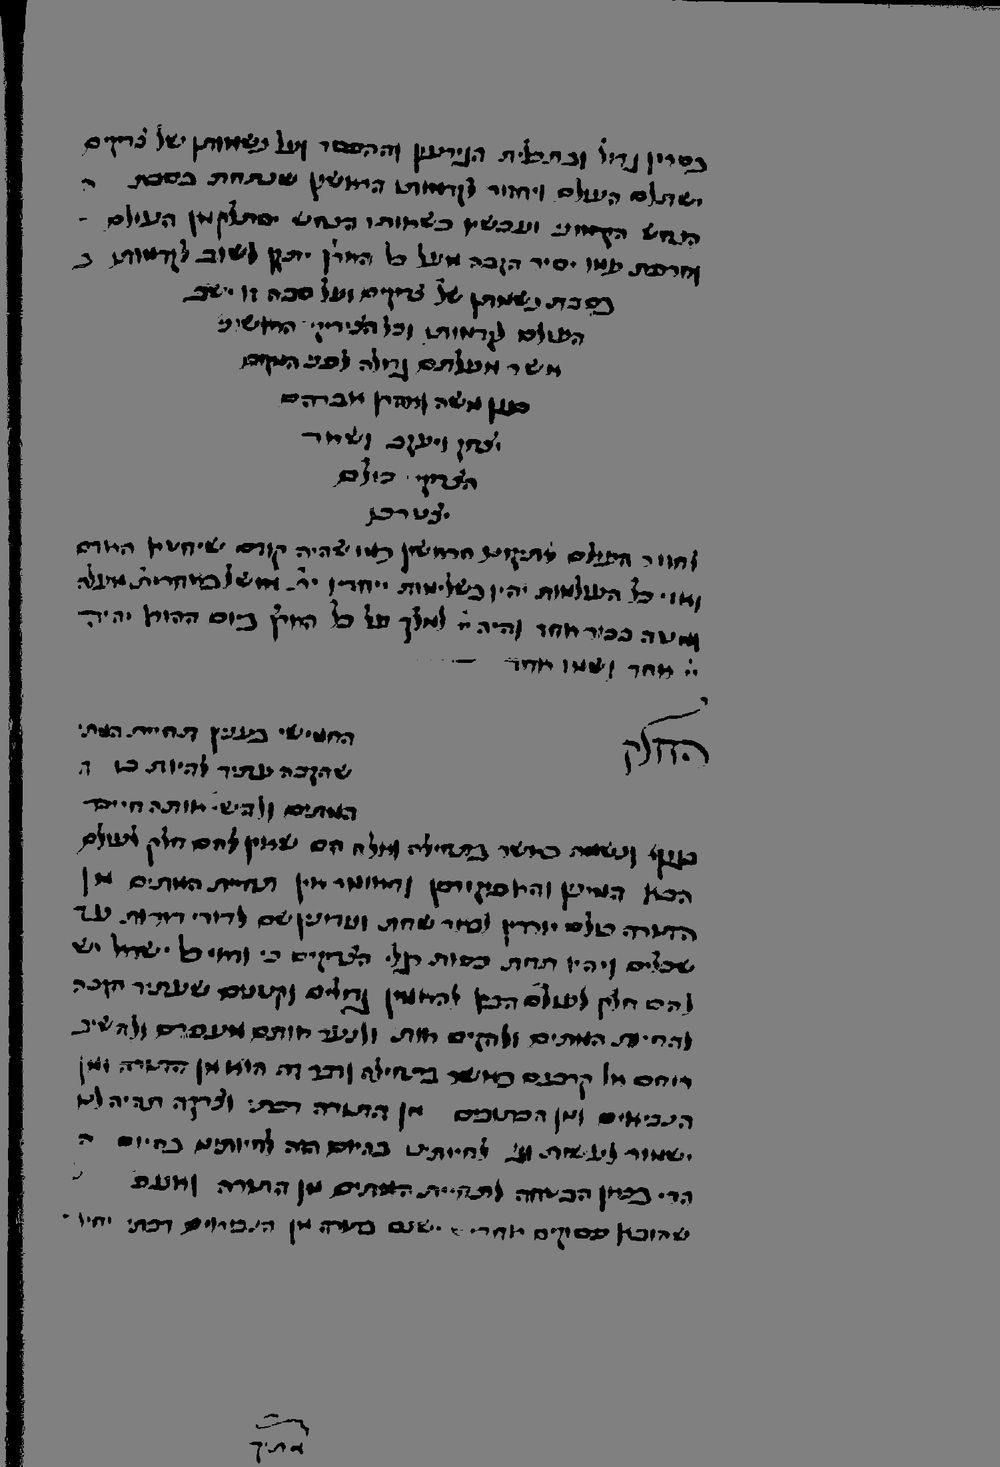 בסריון גדול ובתכלית הגירעון וההספר ועל נשמותן של צדיקים
ישתלם העולם ויחזור לקדמותו הראשון שנתחת בסבת ה
הנחש הקדמוני ועכשיו כשמותו הנחש יסתלק מן העולם
וחרפת עמו יסיר הקבה מעל כל הארץ יתקן לשוב לקדמותן ב
בסבת נשמתן של צדיקים ועל סבה זו ישוב
העולם לקדמותו וכל הצדיקי הראשוני
אשר מעלתם גדולה לפני המקום
כגון משה ואהרן אברהם
יצחק ויעקב ושאר
הצדיקי כולם
יצטרכו
לחזור העולם לתקונו הראשון כמו שהיה קודם שיחטא האדם
ואזי כל העולמות יהיו בשלימות ייחדיו
ומטה ככור אחד והיה יי למלך על כל הארץ ביום ההוא יהיה
יי אחד ושמו אחד
החלק
החמישי בענין תחיית המתי
שהקבה עתיד להיות בו ה
המתים ולהשי אותה חיים
בגוף ונשמה כאשר בתחילה ואלה הם שאין להם חלק לעולם
הבא המינין והאפיקורסין והאומר אין תחיית המתים מן
התורה כולם יורדין לבאר שחת ונידונין שם לדורי דורות עד
שכלים ויהיו תחת כפות רגלי הצדיקים כי ודאי כל ישראל יש
להם חלק לעולם הבא להאמין גדולים וקטנים שעתיד הקבה
להחיות המתים ולהקים אות ולנער אותם מעפרם ולהשיב
רוחם אל קרבנם כאשר בתחילה ודבר זה הוא מן התורה ומן
הנביאים ומן הכתובים מן התורה דכתי וצדקה תהיה לנו
ישמור לעשות וגו לחיותינו בהיום הזה לחיותינו כהיום ה
הרי בכאן הבטחה לתחיית המתים מן התורה ומעם
שהובא פסוקים אחרי ישנם בתורה מן הנביאים דכתי יחיו
מתיך